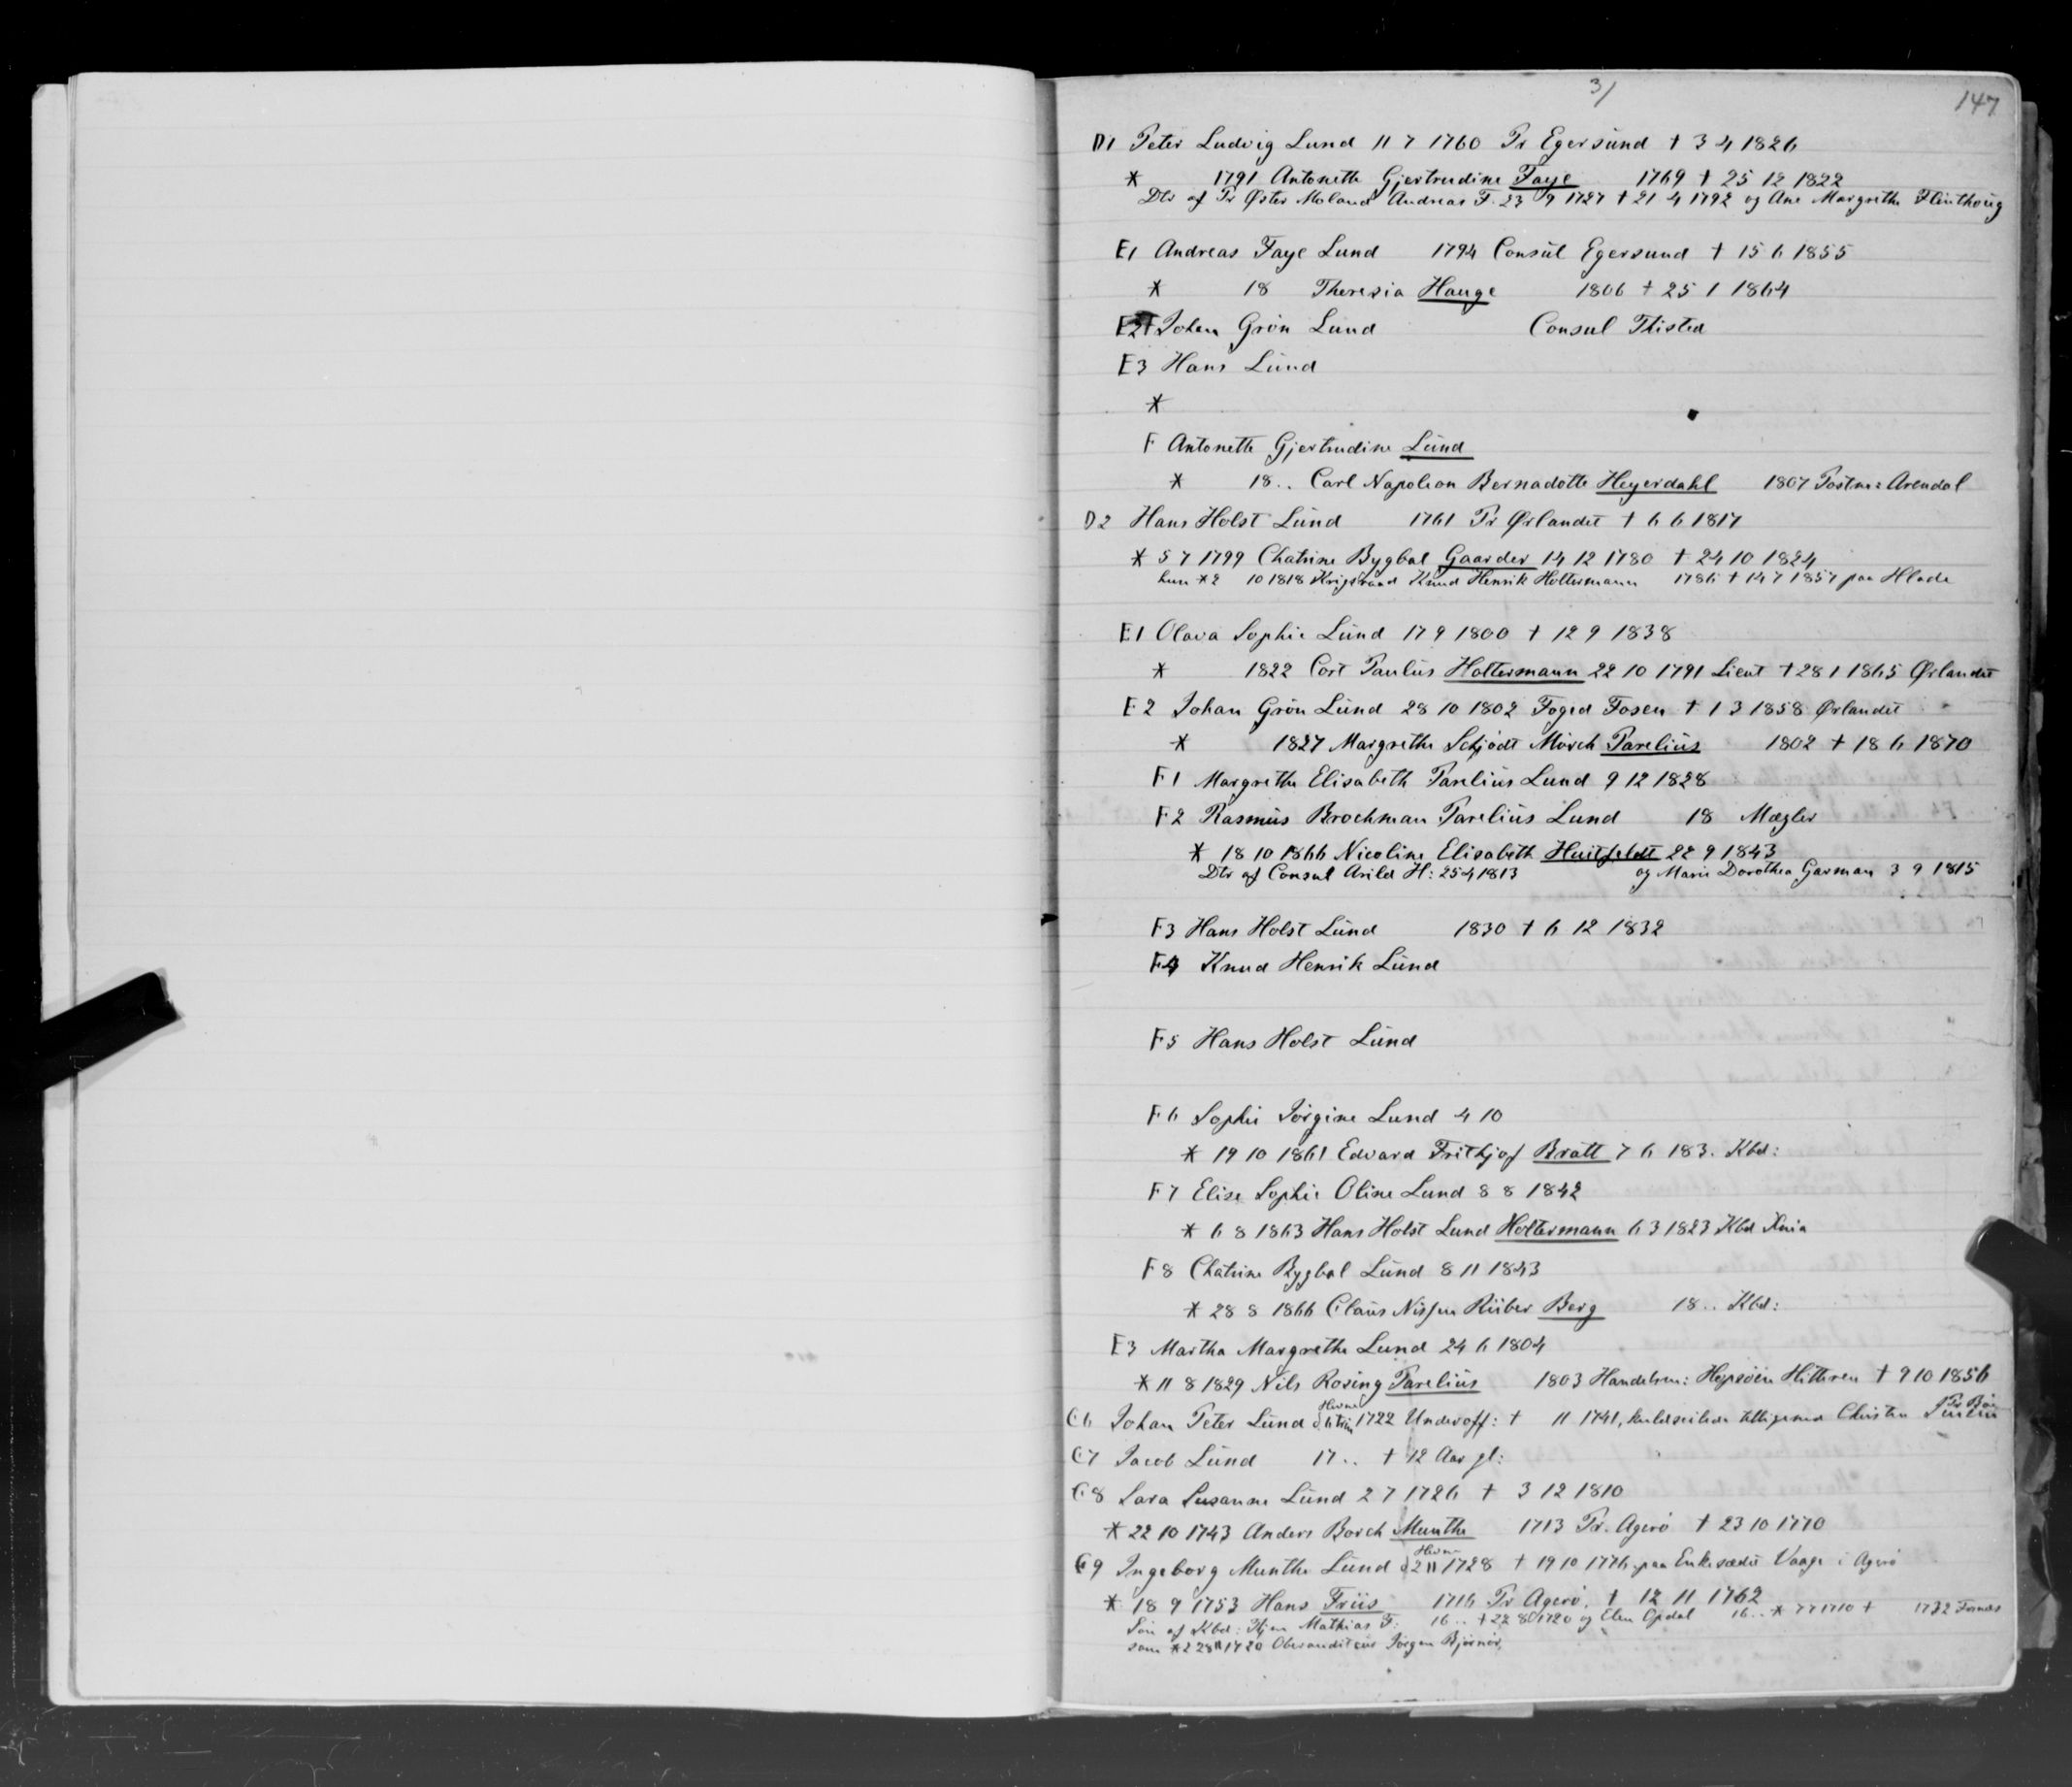 3/
147
D1 Peter Ludvig Lund 11 7 1760 Pr Egersund † 3 4 1826
* 1791 Antonette Gjertrudine Faye 1769 † 25 12 1822
Dtr af Pr Øster Moland Andreas F. 23 9 1727 † 21 4 1792 og Ane Margrethe Flinthoug
E1 Andreas Faye Lund 1794 Consul Egersund † 15 6 1855
* 18 Theresia Hauge 1806 † 25 1 1864
E2 Johan Grøn Lund Consul Thisted
E3 Hans Lund
*
F Antonette Gjertrudine Lund
* 18.. Carl Napoleon Bernadotte Heyerdahl 1807 Postm: Arendal
D2 Hans Holst Lund 1761 Pr Ørlandet † 6 6 1817
* 5 7 1799 Chatrine Bygbal Gaarder 14 12 1780 † 24 10 1824
hun *2 10 1818 Krigsraad Knud Henrik Holtermann 1786 † 14 7 1857 paa Hlade
E1 Olava Sophie Lund 17 9 1800 † 12 9 1838
* 1822 Cort Paulus Holtermann 22 10 1791 Lieut † 28 1 1865 Ørlandet
E2 Johan Grøn Lund 28 10 1802 Foged Fosen † 1 3 1858 Ørlandet
* 1827 Margrethe Schjødt Mørch Parelius 1802 † 18 6 1870
F1 Margrethe Elisabeth Parelius Lund 9 12 1828
F2 Rasmus Brochman Parelius Lund 18 Mægler
* 18 10 1866 Nicoline Elisabeth Huitfeldt 22 9 1843
Dtr af Consul Arild H: 25 4 1813 og Marie Dorothea Garman 3 9 1815
F3 Hans Holst Lund 1830 † 6 12 1832
F4 Knud Henrik Lund
F5 Hans Holst Lund
F6 Sophie Jørgine Lund 4 10
* 19 10 1861 Edvard Frithjof Bratt 7 6 183. Kbd:
F7 Elise Sophie Oline Lund 8 8 1842
* 6 8 1863 Hans Holst Lund Holtermann 6 3 1823 Kbd Xnia
F8 Chatrine Bygbal Lund 8 11 1843
* 28 8 1866 Claus Nissen Riiber Berg 18.. Kbd:
E3 Martha Margrethe Lund 24 6 1804
* 11 8 1829 Nils Rosing Parelius 1803 Handelsm: Hopsøen Hitteren † 9 10 1856
C6 Johan Peter Lund 1722 Underoff: † 11 1741, kuldseilede tilligemed Christen
C7 Jacob Lund 17.. † 12 Aar gl:
C8 Sara Susanne Lund 2 7 1726 † 3 12 1810
* 22 10 1743 Anders Borch Munthe 1713 Pr. Agerø † 23 10 1770
C9 Ingeborg Munthe Lund 2 11 1728 † 19 10 1776 paa Enkesædet Vaage i Agerø
* 18 9 1753 Hans Friis 1716 Pr Agerø. † 12 11 1762
Søn af Kbd: Mathias F: 16.. † 22 8 1720 og Elen Opdal 16.. * 7 7 1710 † 1732
som *2 28 11 1720 Oberauditeur Jørgen Bjørnør.